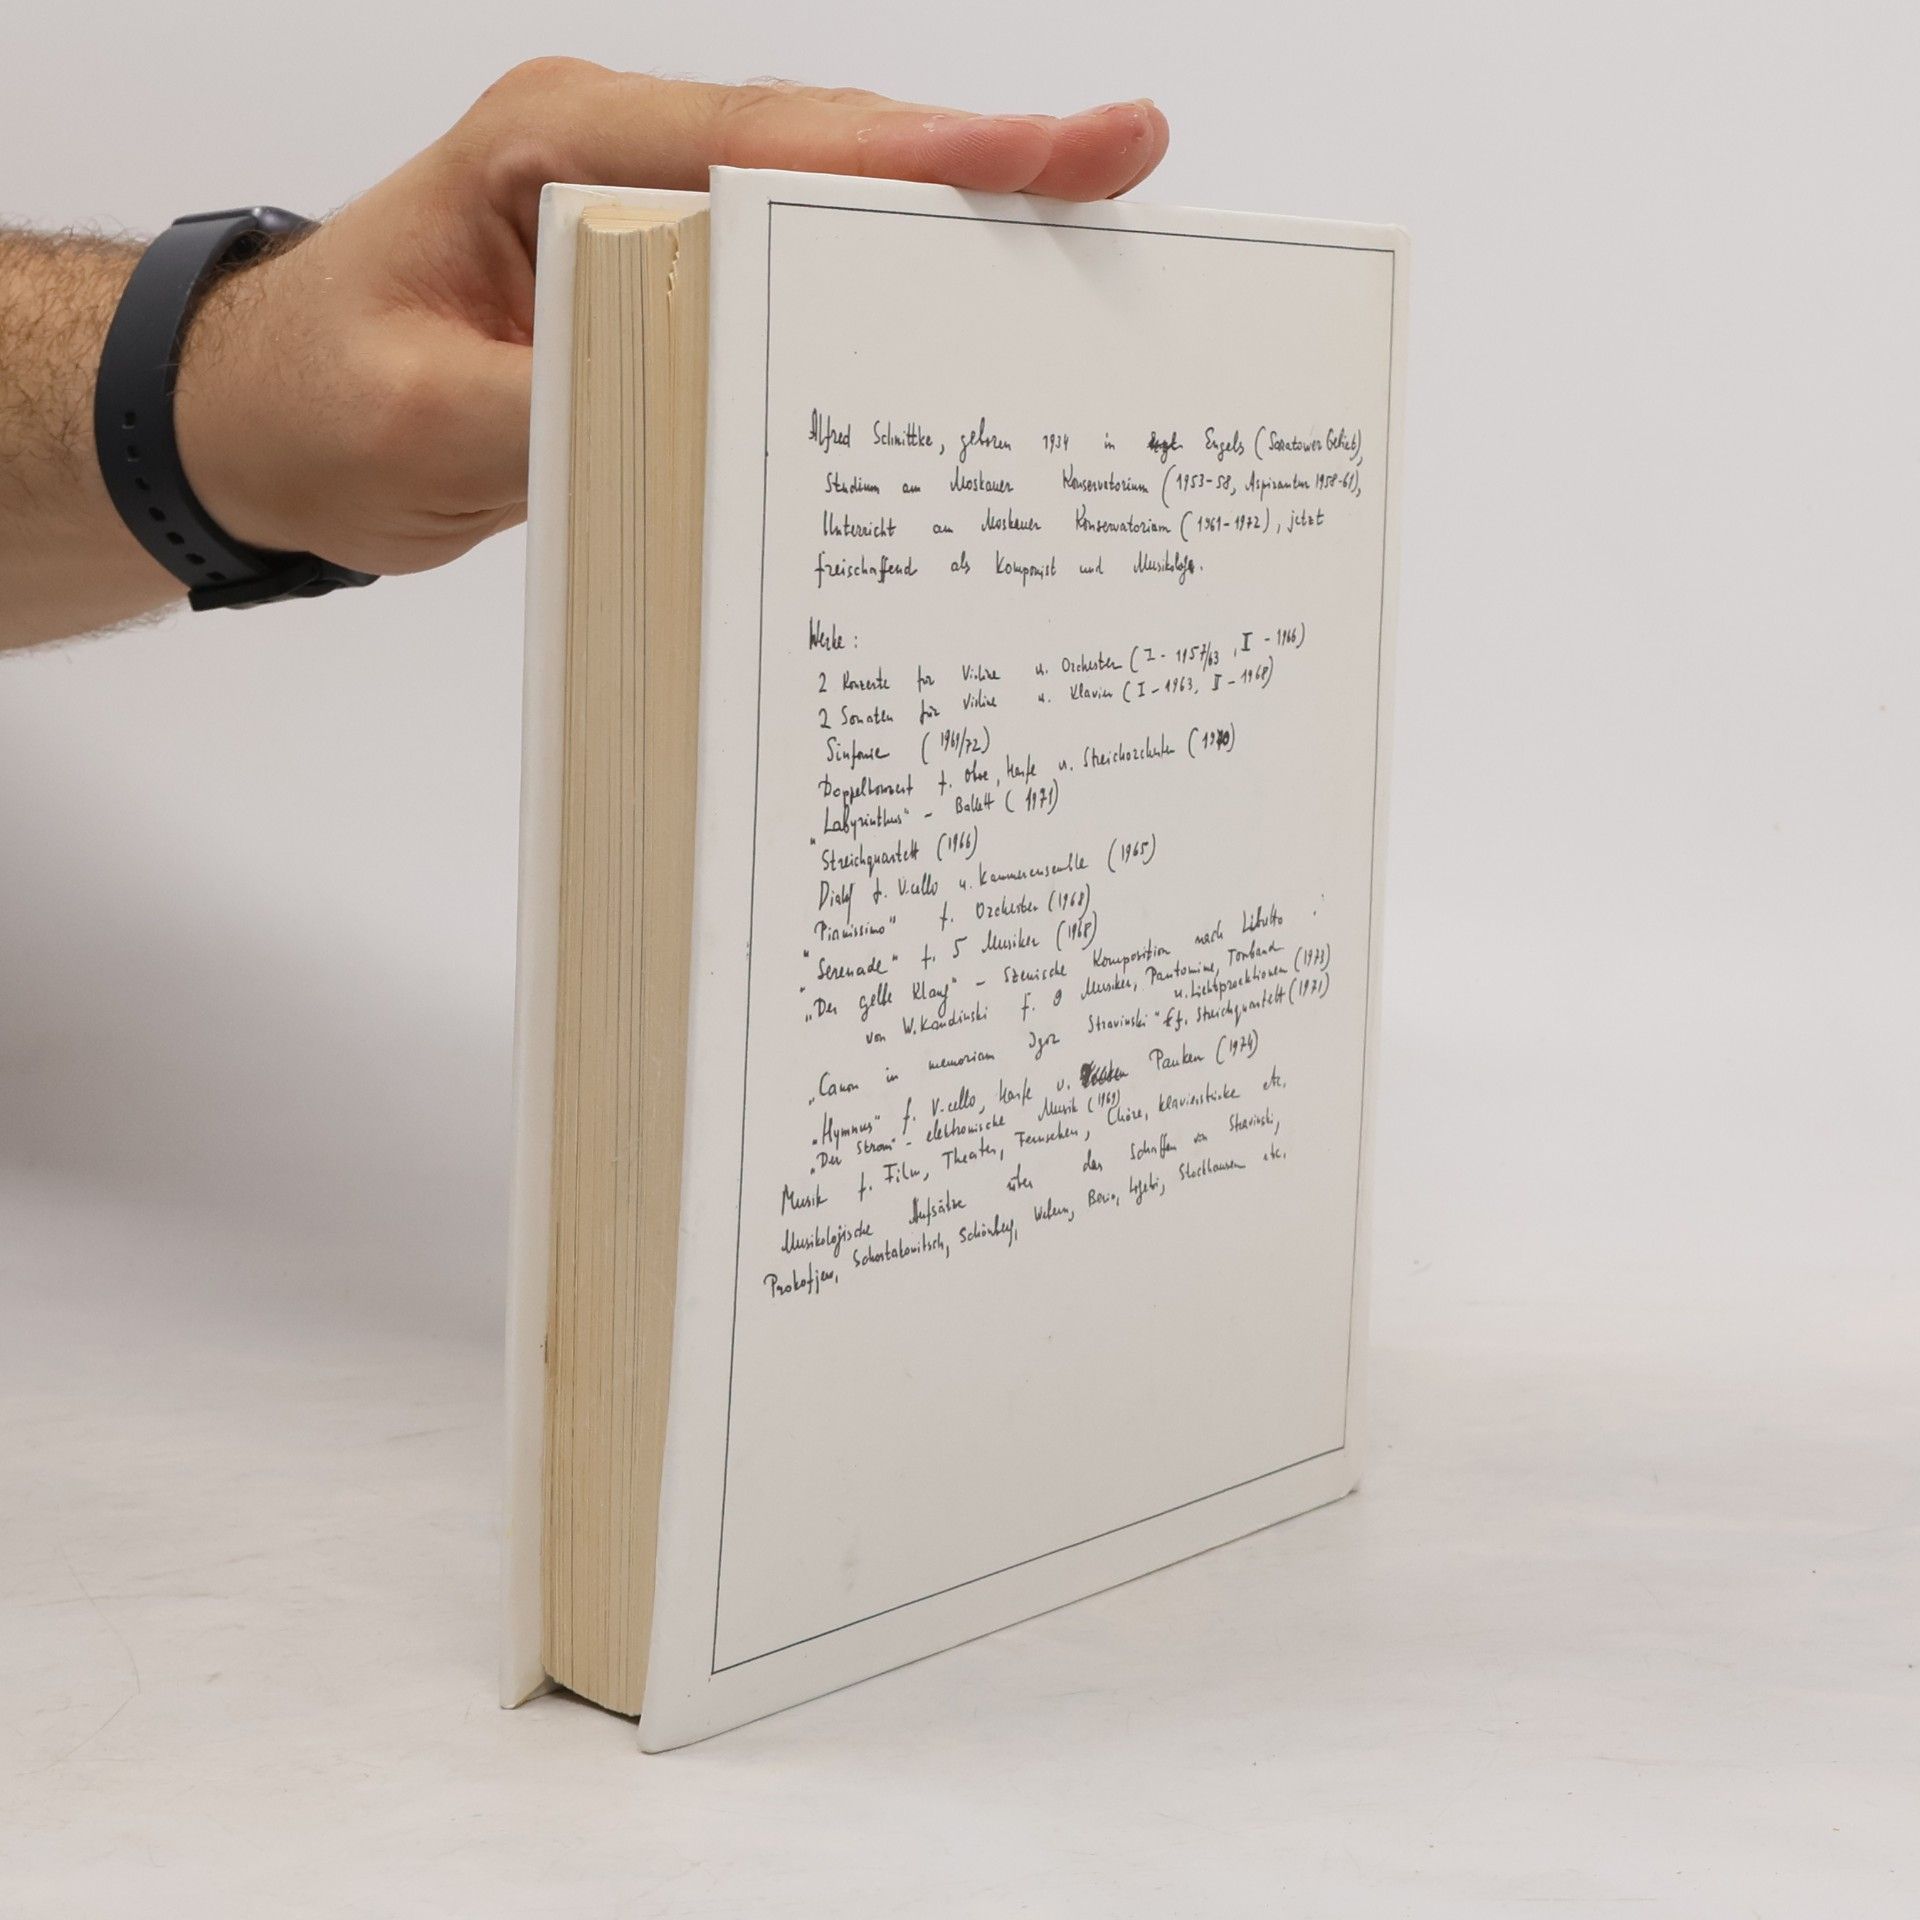 Alfred Schnittke, geboren 1934 in Engels (Saratower Gebiet),
Studium am Moskauer Konservatorium (1953-58, Aspirantur 1958-61),
Unterricht am Moskauer Konservatorium (1961-1972), jetzt
freischaffend als Komponist und Musikologe.
Werke:
2 Konzerte für Violine u. Orchester (I - 1957/63, II - 1966)
2 Sonaten für Violine u. Klavier (I - 1963, II - 1968)
Sinfonie (1969/72)
Doppelkonzert f. Oboe, Harfe u. Streichorchester (1970)
"Labyrinthus" - Ballett (1971)
Streichquartett (1966)
Dialog f. V-cello u. Kammerensemble (1965)
"Pianissimo" f. Orchester (1968)
"Serenade" f. 5 Musiker (1968)
„Der gelbe Klang" - Szenische Komposition nach Libretto
von W. Kandinski f. 9 Musiker, Pantomime, Tonband
u. Lichtprojektionen (1973)
„Canon in memoriam Igor Stravinski" f. Streichquartett (1971)
„Hymnus" f. V-cello, Harfe u. Pauken (1974)
„Der Strom" - elektronische Musik (1969)
Musik f. Film, Theater, Fernsehen, Chöre, Klavierstücke etc.
Musikologische Aufsätze über das Schaffen von Stravinski,
Prokofjew, Schostakowitsch, Schönberg, Webern, Berio, Ligeti, Stockhausen etc.